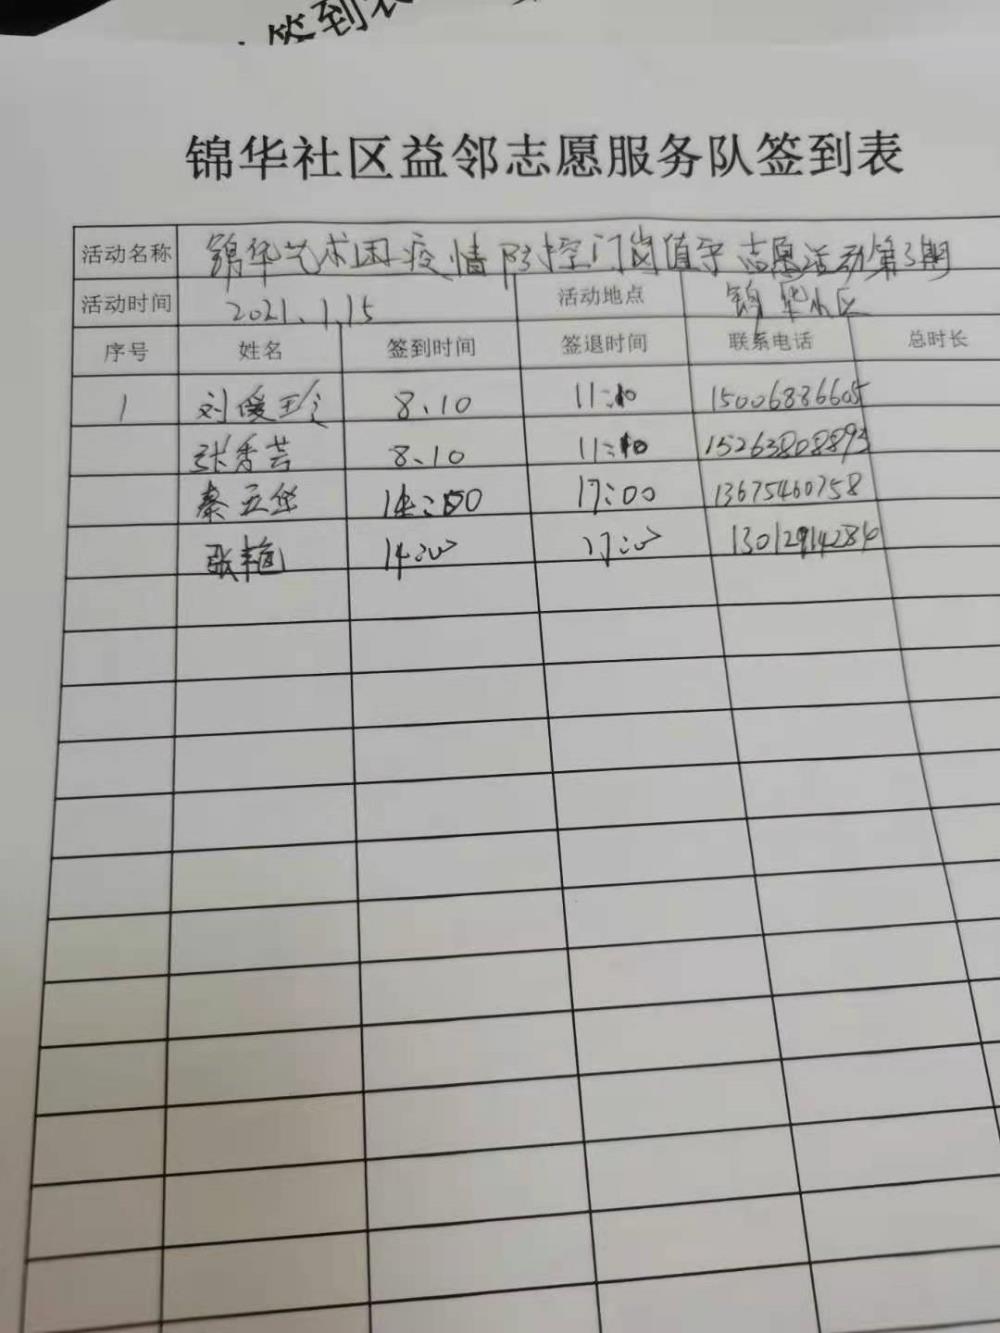 签到表
锦华社区益邻志愿服务队签到表
活动名称 锦华艺术团疫情防控门岗值守志愿活动第3期
活动时间 2021.1.15 活动地点 锦华小区
序号 姓名 签到时间 签退时间 联系电话 总时长
1 刘爱珍 8.10 11:10 15006886605
张秀芸 8.10 11:10 15263808893
秦玉华 14:00 17:00 13675460758
张艳 14:00 17:00 13012914284